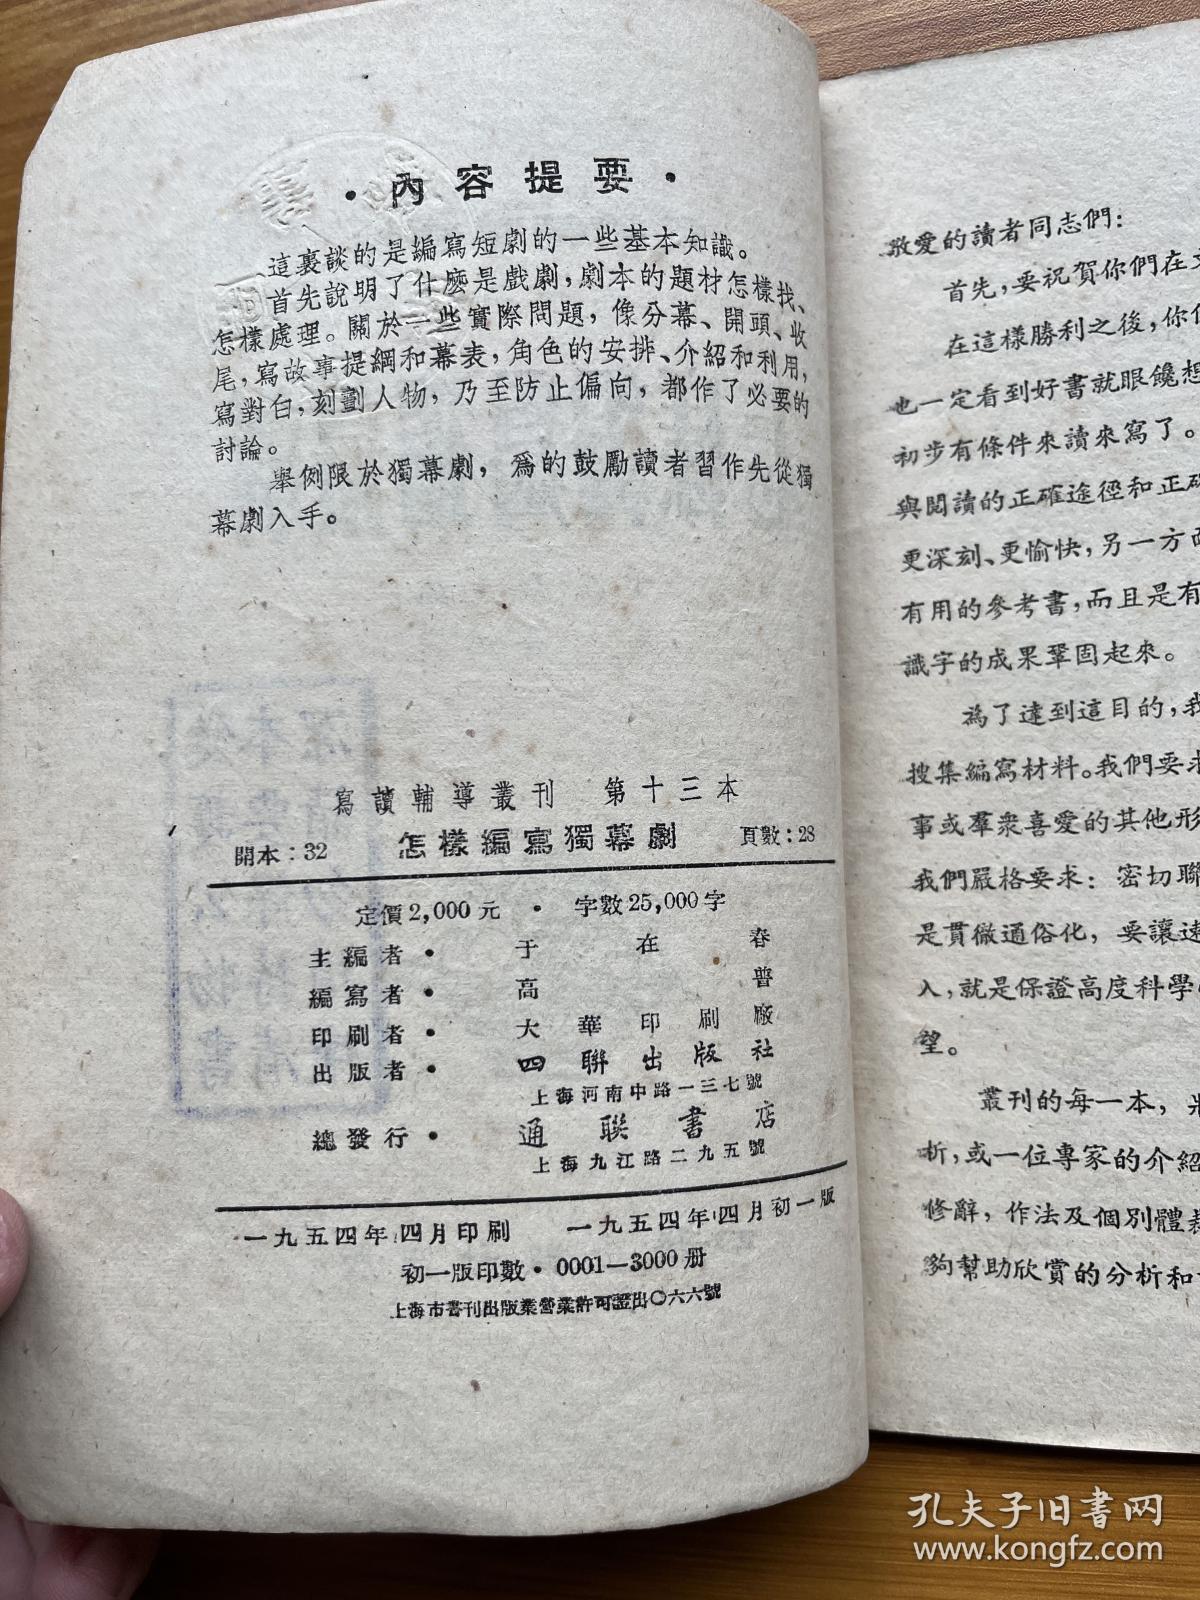 ·內容提要·
這裏談的是編寫短劇的一些基本知識。
首先說明了什麽是戲劇，劇本的題材怎樣找、
怎樣處理。關於一些實際問題，像分幕、開頭、收
尾，寫故事提綱和幕表，角色的安排、介紹和利用，
寫對白，刻劃人物，乃至防止偏向，都作了必要的
討論。
舉例限於獨幕劇，爲的鼓勵讀者習作先從獨
幕劇入手。
寫讀輔導叢刊 第十三本
開本：32 怎樣編寫獨幕劇 頁數：28
定價2,000元 · 字數25,000字
主編者 · 于在春
編寫者 · 高普
印刷者 · 大華印刷廠
出版者 · 四聯出版社
上海河南中路一三七號
總發行 · 通聯書店
上海九江路二九五號
一九五四年四月印刷 一九五四年四月初一版
初一版印數·0001—3000册
上海市書刊出版業營業許可證出〇六六號
敬愛的讀者同志們：
首先，要祝賀你們在文
在這樣勝利之後，你們
也一定看到好書就眼饞想
初步有條件來讀來寫了。
與閱讀的正確途徑和正確
更深刻、更愉快，另一方面
有用的參考書，而且是有
識字的成果鞏固起來。
爲了達到這目的，我
搜集編寫材料。我們要求
事或羣衆喜愛的其他形
我們嚴格要求：密切聯
是貫徹通俗化，要讓遠
入，就是保證高度科學
望。
叢刊的每一本，
析，或一位專家的介紹
修辭，作法及個別體裁
夠幫助欣賞的分析和
孔夫子旧书网
www.kongfz.com